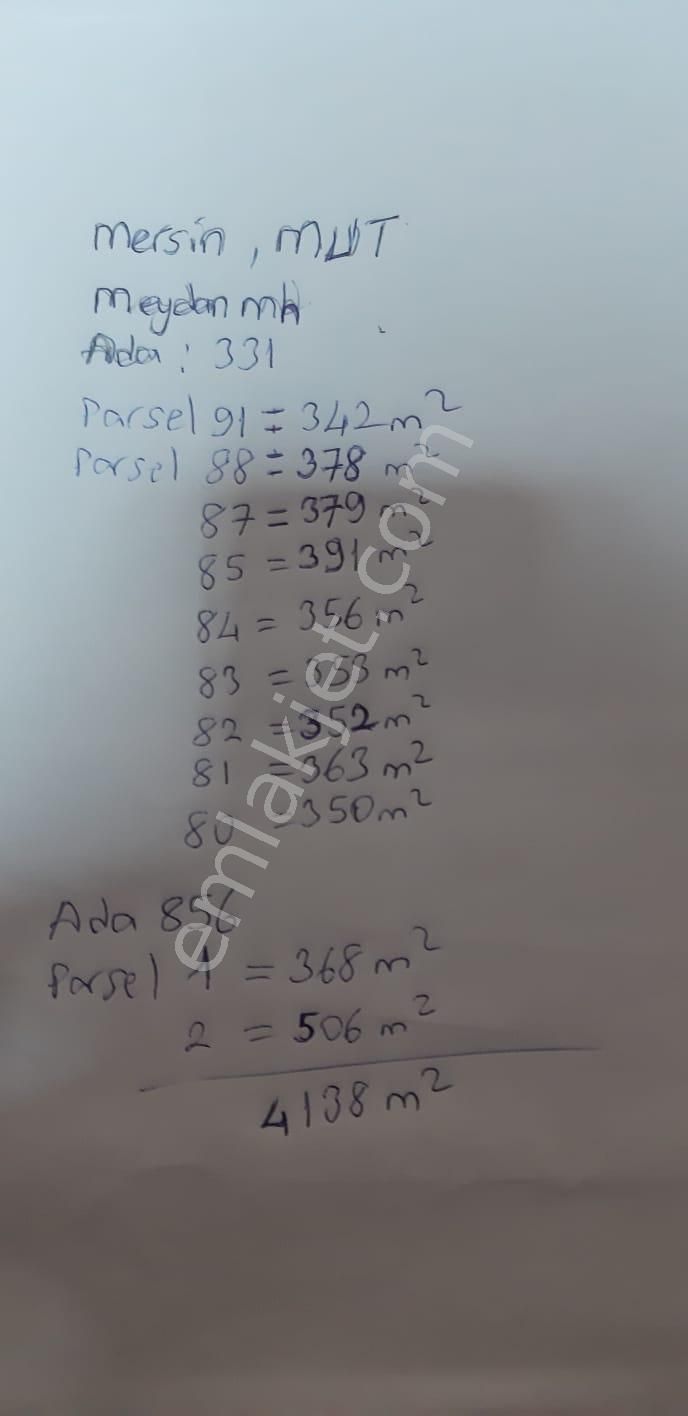 Mersin, MUT
Meydan mh
Ada: 331
Parsel 91 = 342 m²
Parsel 88 = 378 m²
87 = 379 m²
85 = 391 m²
84 = 356 m²
83 = 353 m²
82 = 352 m²
81 = 363 m²
80 = 350 m²
Ada 856
Parsel 1 = 368 m²
2 = 506 m²
4138 m²
emlakjet.com